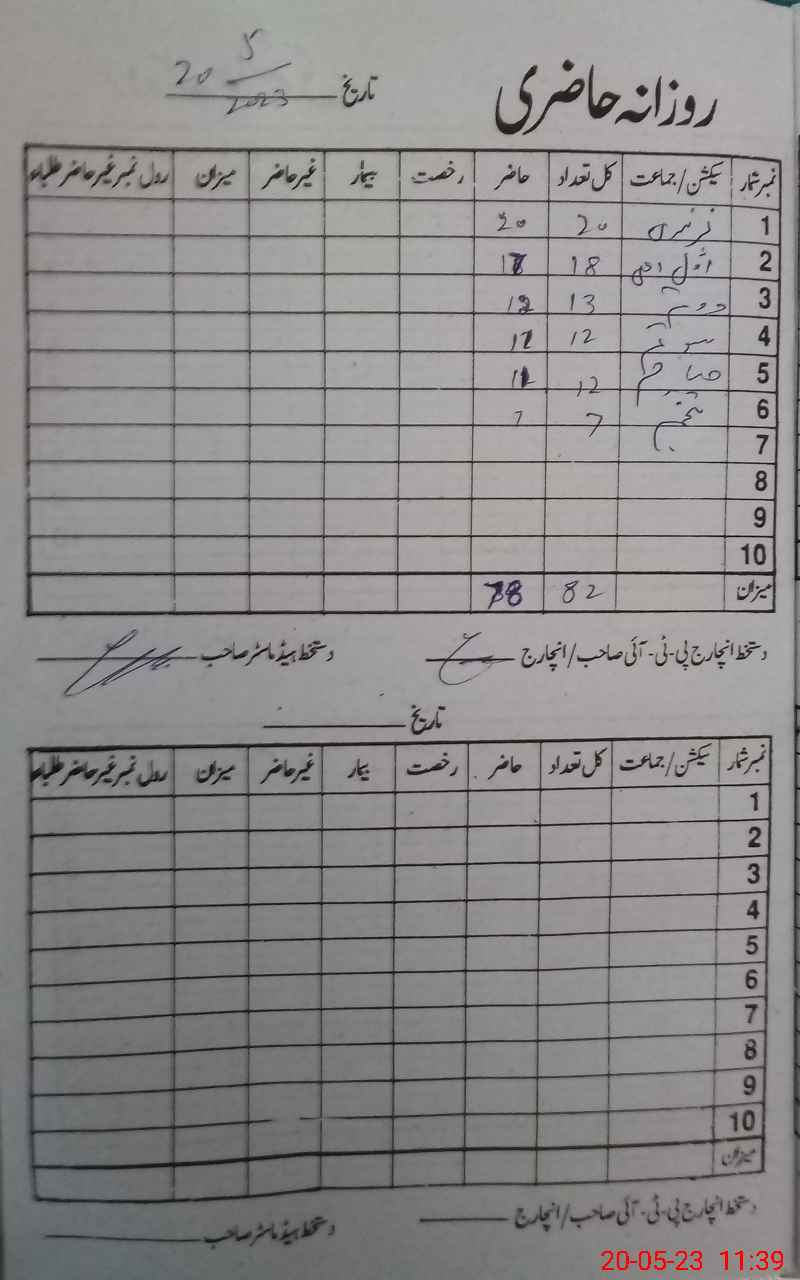 روزانہ حاضری
تاریخ 20 5 2023
نمبر شمار سیکشن/جماعت کل تعداد حاضر رخصت بیمار غیر حاضر میزان رول نمبر غیر حاضر طلباء
1 نرسری 20 20
2 18
3 دوئم 13 12
4 سوئم 12
5 12
6 پنجم 7 7
7
8
9
10
میزان 82 78
دستخط انچارج پی-ٹی-آئی صاحب/انچارج دستخط ہیڈ ماسٹر صاحب
تاریخ
نمبر شمار سیکشن/جماعت کل تعداد حاضر رخصت بیمار غیر حاضر میزان رول نمبر غیر حاضر طلباء
1
2
3
4
5
6
7
8
9
10
میزان
دستخط انچارج پی-ٹی-آئی صاحب/انچارج دستخط ہیڈ ماسٹر صاحب
20-05-23 11:39